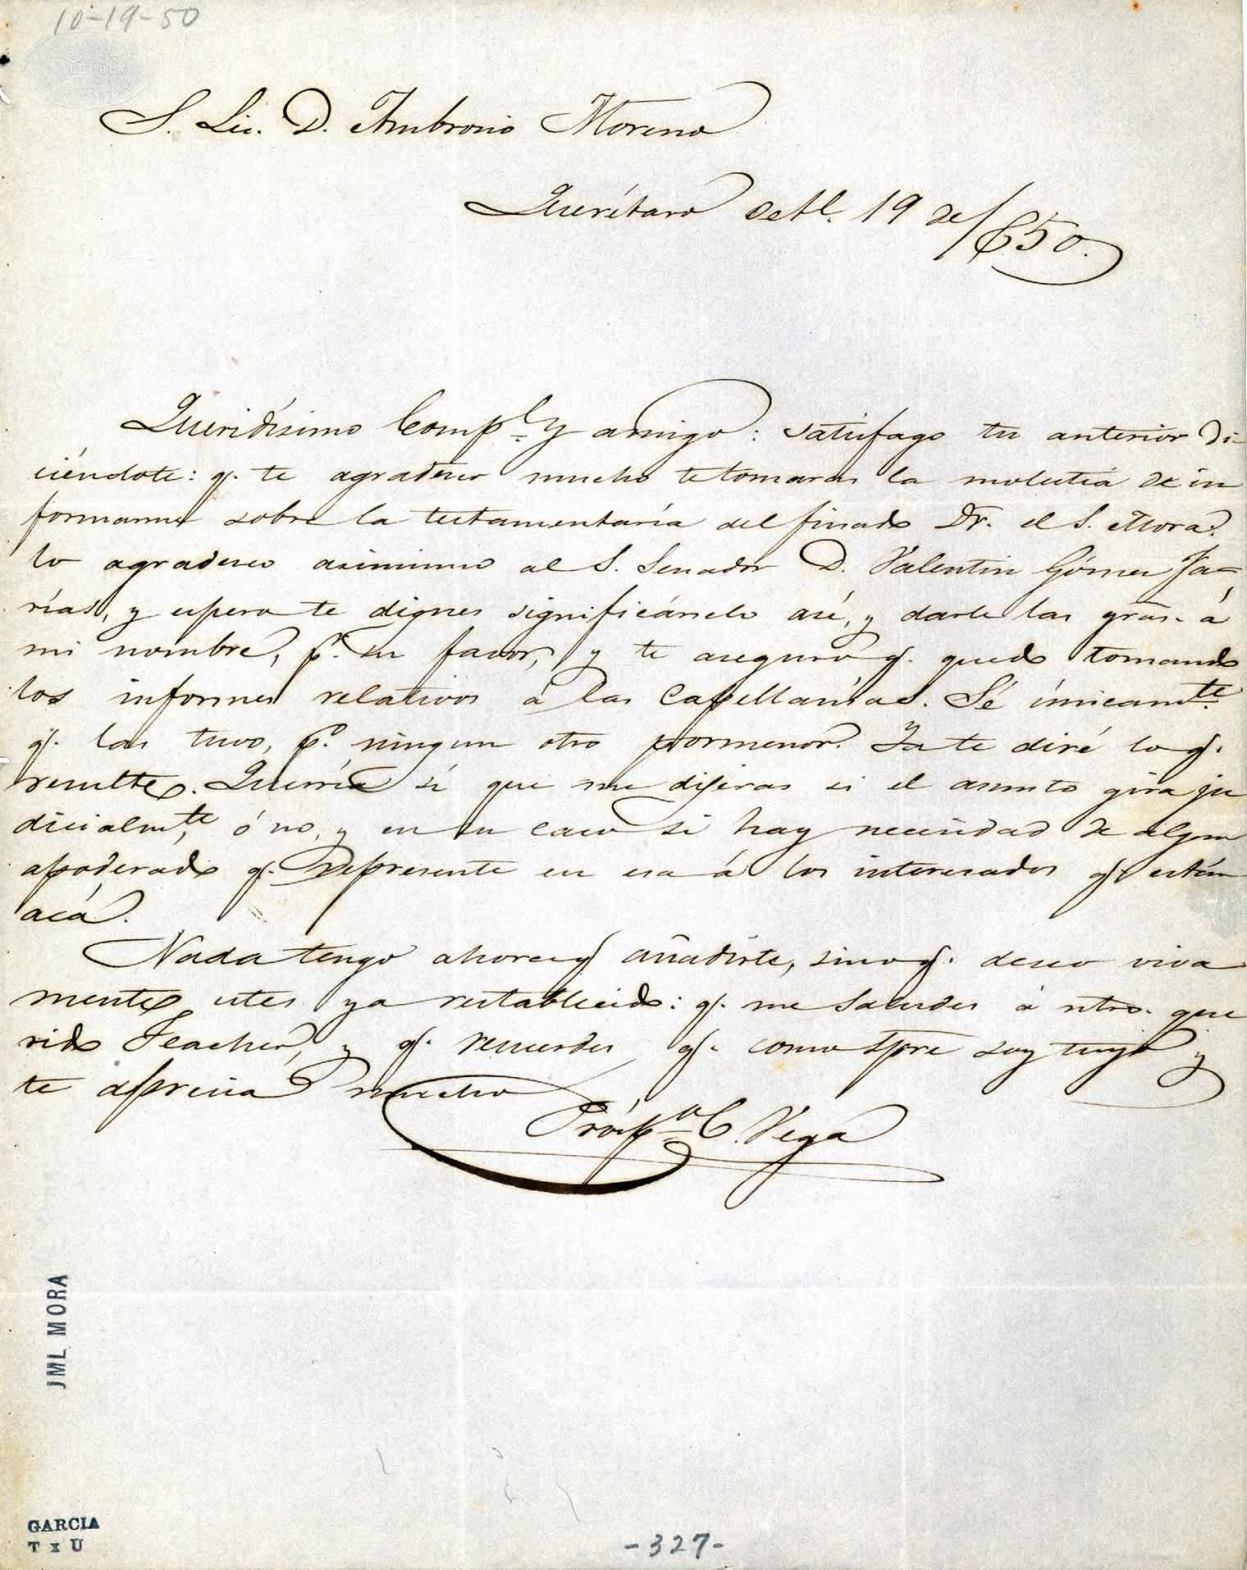 10-19-50
S. Lic. D. Ambrosio Moreno
Querétaro Octe. 19 de/850.
Queridísimo Comp.e y amigo: satisfago tu anterior di-
ciéndote: q. te agradesco mucho te tomaras la molestia de in
formarme sobre la testamentaría del finado Dr. el S. Mora.
lo agradesco asimismo al S. Senador D. Valentin Gómes Fa-
rías, y espero te dignes significárselo así, y darle las gras. á
mi nombre, p.r su favor, y te aseguro q. quedo tomando
los informes relativos á las Capellanías. Sé únicam.te
q. las tuvo, p.o ningun otro pormenor. Ya te diré lo q.
resulte. Querría sí que me dijeras si el asunto gira ju
dicialm.te, ó no, y en su caso si hay necesidad de algun
apoderado q. represente en esa á los interesados q. están
acá.
Nada tengo ahora q. añadirte, sino q. deseo viva
mente estes ya restablecido: q. me saludes á ntro. que
rido Teacher, y q. recuerdes q. como spre soy tuyo y
te aprecia mucho
Prósp.o C. Vega
JML MORA
GARCIA
T x U
-327-